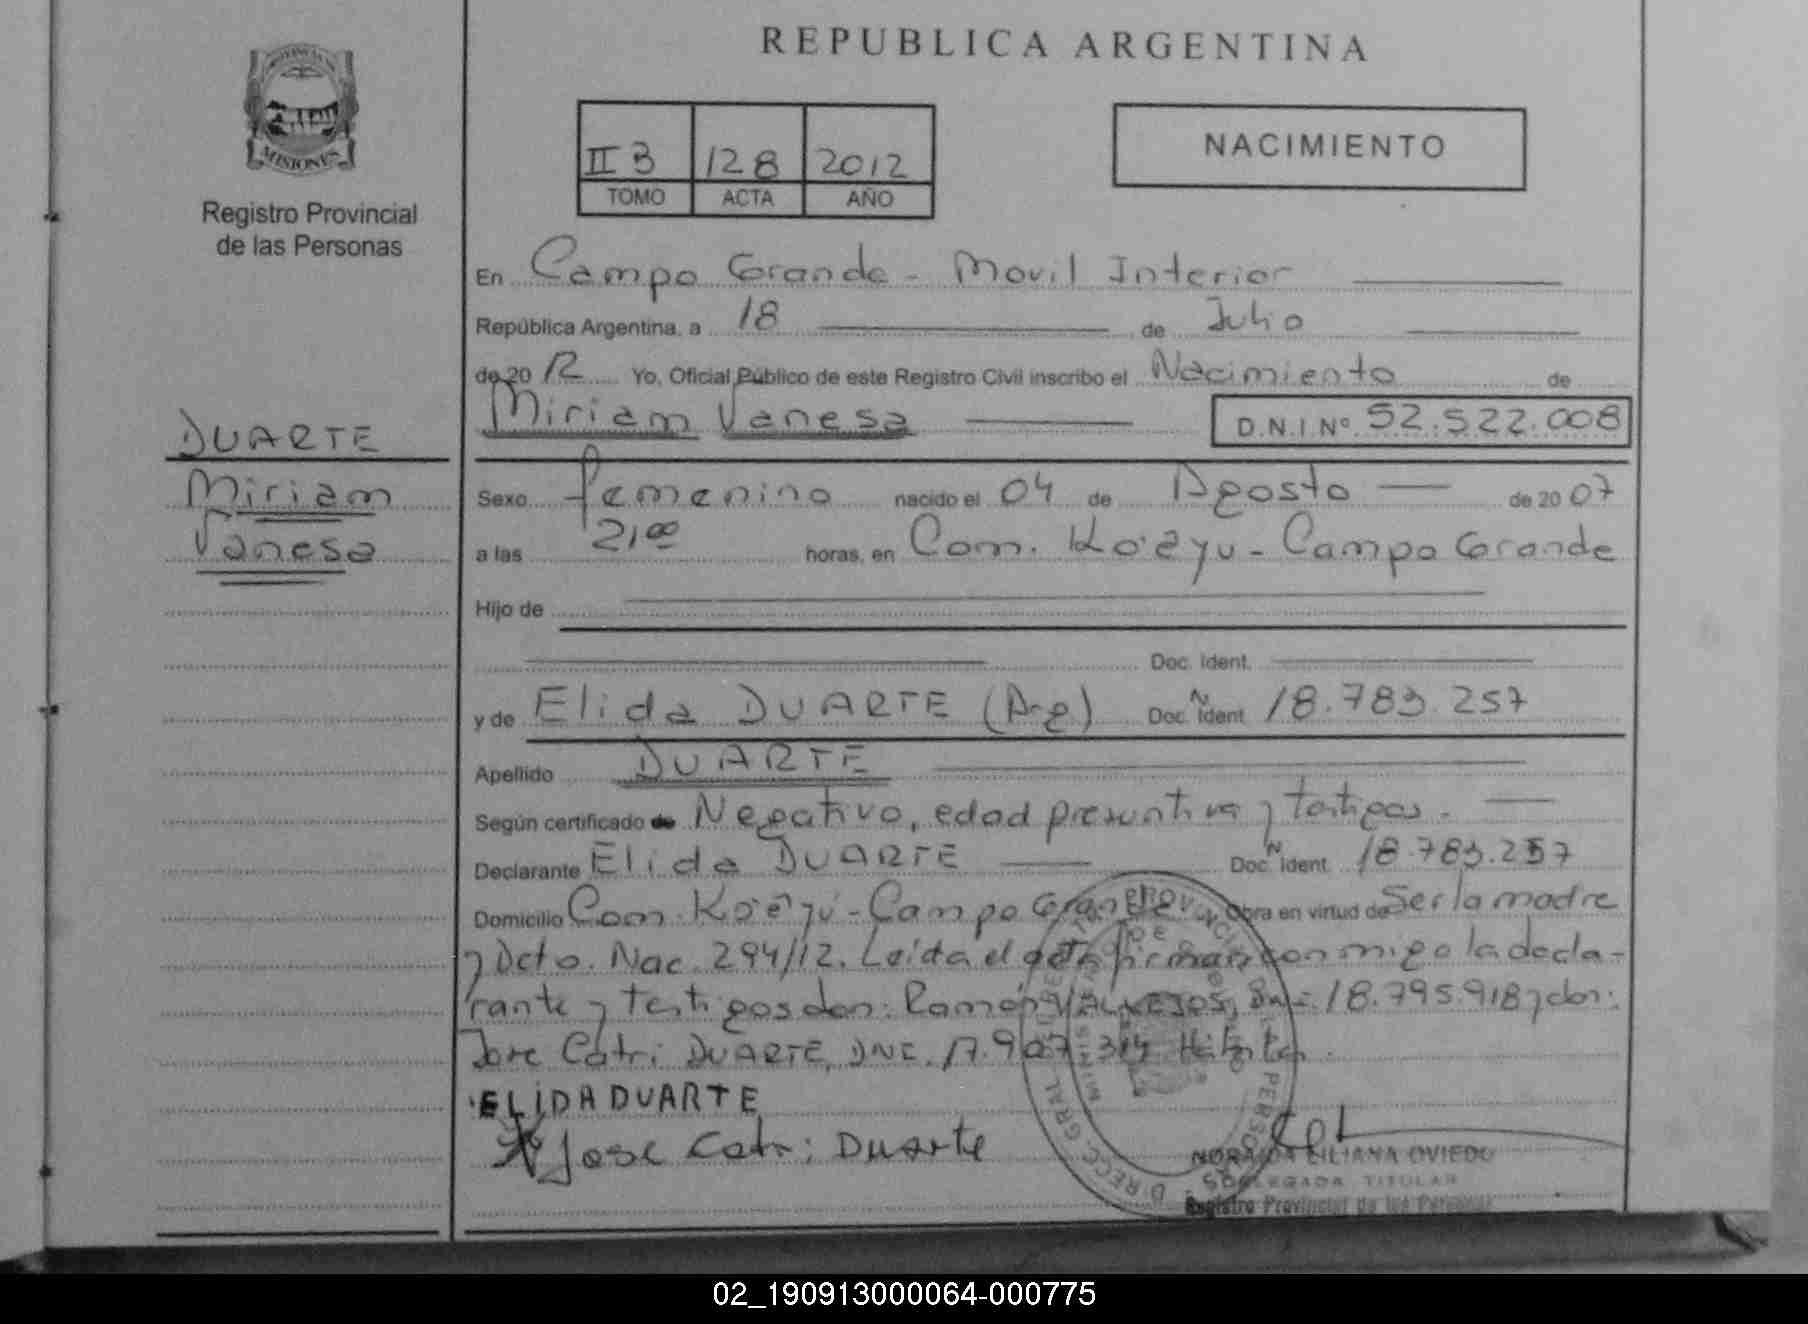 REPUBLICA ARGENTINA
PROVINCIA DE
MISIONES
Registro Provincial
de las Personas
II B 128 2012
TOMO ACTA AÑO
NACIMIENTO
En Campo Grande - Movil Interior
República Argentina, a 18 de Julio
de 20 12 Yo, Oficial Público de este Registro Civil inscribo el Nacimiento de
Miriam Vanesa D.N.I Nº 52.522.008
DUARTE
Miriam
Vanesa
Sexo femenino nacido el 04 de Agosto de 20 07
a las 21,00 horas, en Com. Ko'ẽyu - Campo Grande
Hijo de
Doc. Ident.
y de Elida DUARTE (Arg) Doc. N Ident 18.783.257
Apellido DUARTE
Según certificado de Negativo, edad presuntiva y testigos.
Declarante Elida DUARTE Doc. N Ident. 18.783.257
Domicilio Com. Ko'ẽyu - Campo Grande Obra en virtud de Ser la madre
y Dcto. Nac. 294/12. Leída el acta firman conmigo la decla-
rante y testigos don: Ramón VALLEJOS, DNI: 18.795.918 y don:
Jose Catri DUARTE, DNI. 17.907.314
ELIDA DUARTE
Jose Catri Duarte
DIRECC. GRAL. PROVINCIAL
NORAIDA LILIANA OVIEDO
SUBDELEGADA TITULAR
Registro Provincial de las Personas
02_190913000064-000775